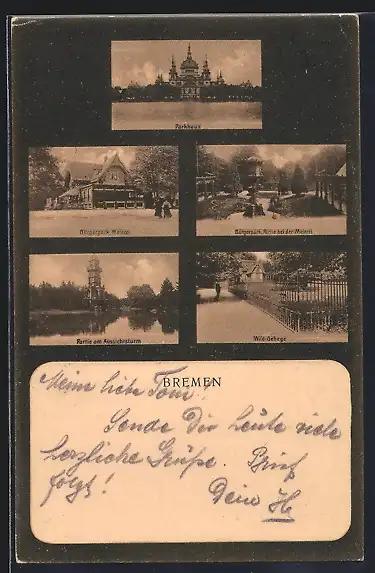 Parkhaus
Bürgerpark, Meierei
Bürgerpark, Partie bei der Meierei
Partie am Aussichtsturm
Wild-Gehege
BREMEN
Meine liebe Toni!
Sende Dir heute viele
herzliche Grüße. Brief
folgt!
Dein H